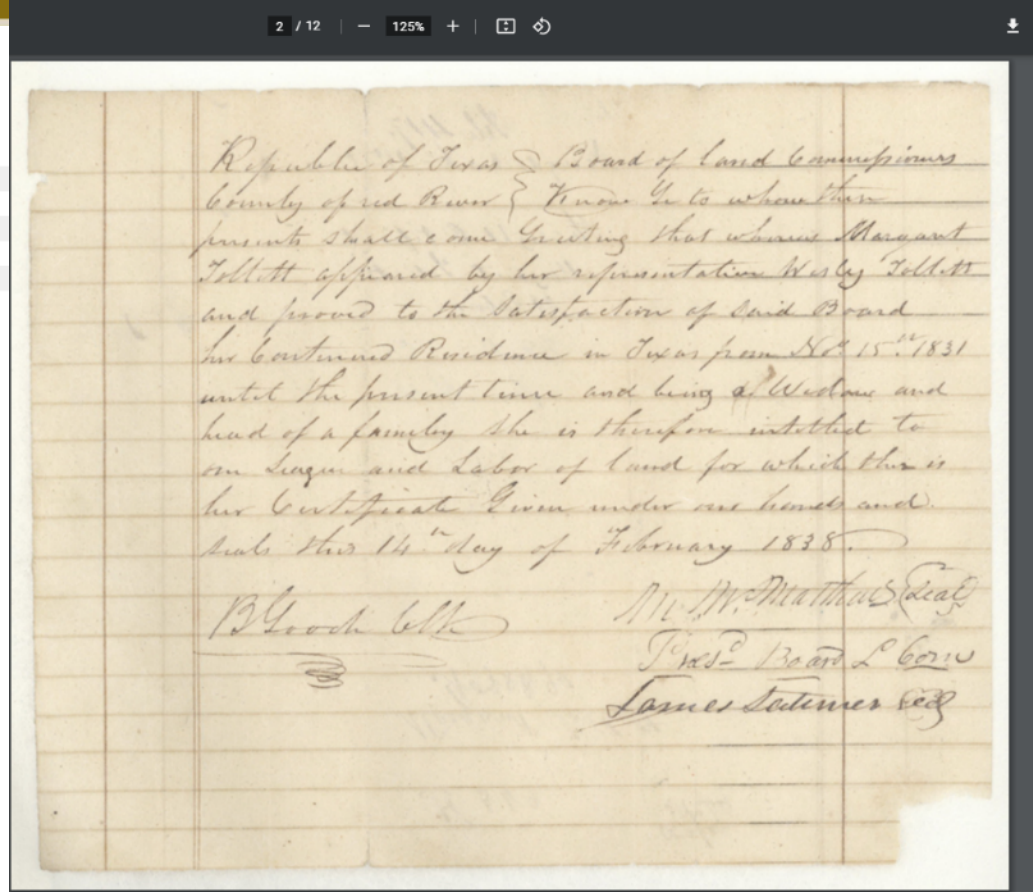 2 / 12 − 125% +
Republic of Texas } Board of land Commissioners
County of red River } Know Ye to whom these
presents shall come Greeting that whereas Margaret
Tollett appeared by her representative Wesley Tollett
and proved to the Satisfaction of Said Board
her Continued Residence in Texas from Nov 15th 1831
until the present time and being a Widow and
head of a family She is therefore intitled to
one League and Labor of land for which this is
her Certificate Given under our hands and
seals this 14th day of February 1838.
B Gooch Clk
W. Matthews Seal
Prest Board L Com
James Latimer Seal